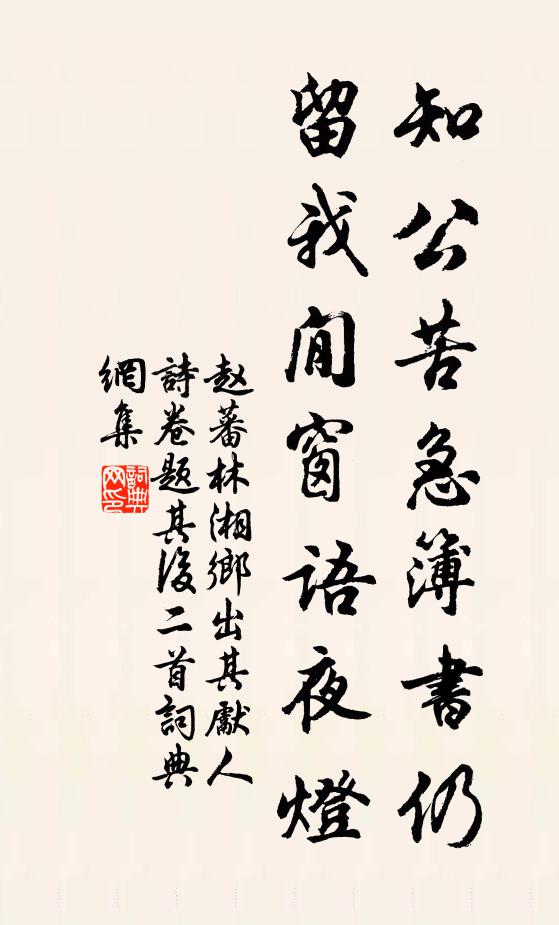 知公苦急簿書仍
留我閒窗語夜燈
赵蕃林湘鄉出其獻人
詩卷题其後二首詞典
網集
詞典网印